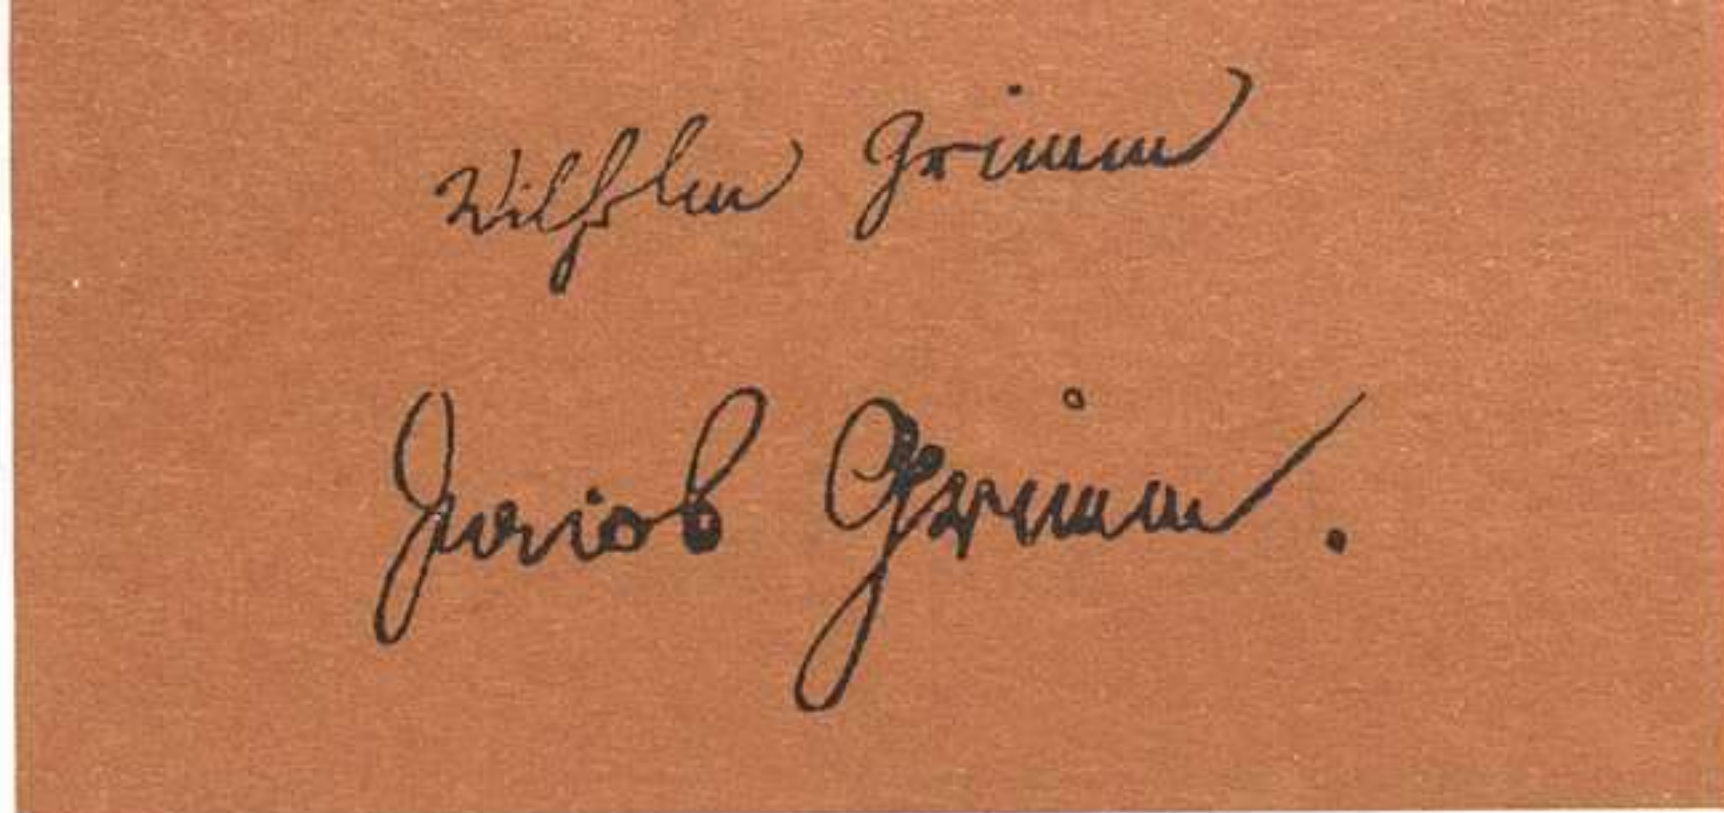 Wilhelm Grimm
Jacob Grimm.